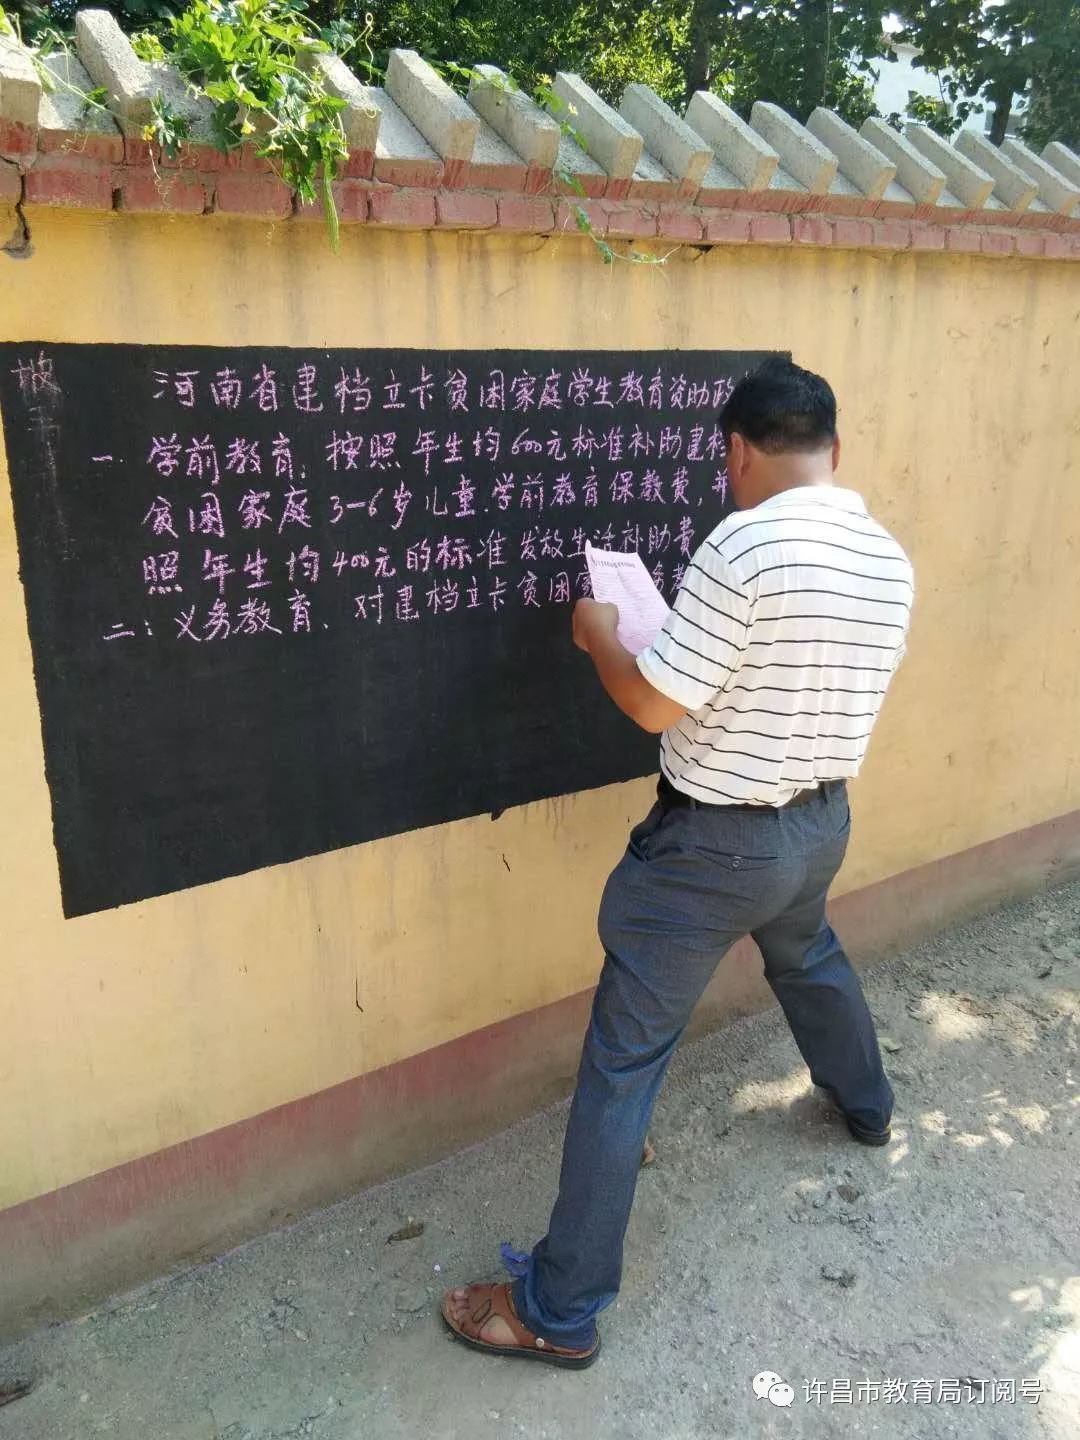 河南省建档立卡贫困家庭学生教育资助政
一 学前教育、按照年生均600元标准补助建档
贫困家庭3-6岁儿童.学前教育保教费,并
照年生均400元的标准发放生活补助费
二:义务教育、对建档立卡贫困家 务教
许昌市教育局订阅号